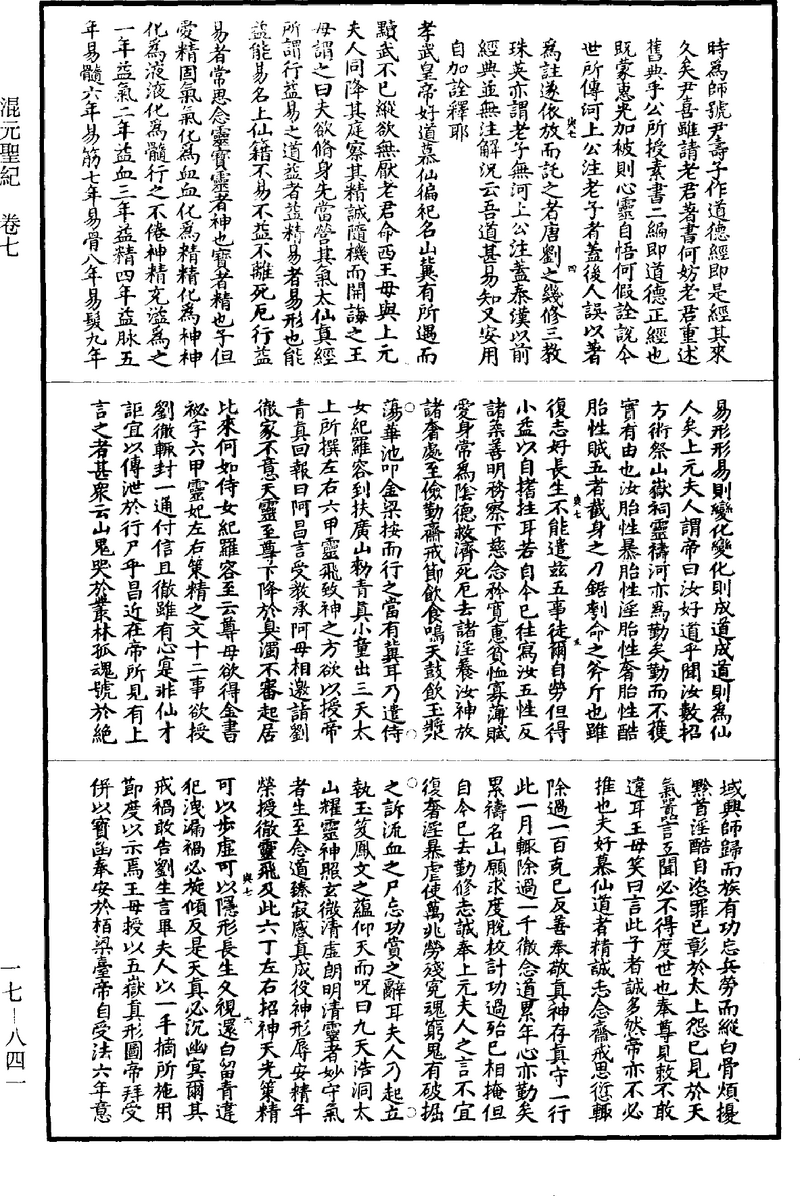 時為師號尹壽子作道德經即是經其來
久矣尹喜雖請老君著書何妨老君重述
舊典乎公所授素書二編即道德正經也
既蒙惠光加被則心靈自悟何假詮說今
世所傳河上公注老子者蓋後人誤以著
為註遂依放而託之者唐劉之幾修三教
珠英亦謂老子無河上公注蓋秦漢以前
經典並無注解況云吾道甚易知又安用
自加詮釋耶
孝武皇帝好道慕仙徧祀名山冀有所遇而
黷武不已縱欲無厭老君命西王母與上元
夫人同降其庭察其精誠隨機而開誨之王
母謂之曰夫欲脩身先當營其氣太仙真經
所謂行益易之道益者益精易者易形也能
益能易名上仙籍不易不益不離死厄行益
易者常思念靈寶靈者神也寶者精也子但
愛精固氣氣化為血血化為精精化為神神
化為液液化為髓行之不倦神精充溢為之
一年益氣二年益血三年益精四年益脉五
年易髓六年易筋七年易骨八年易髮九年
易形形易則變化變化則成道成道則為仙
人矣上元夫人謂帝曰汝好道乎聞汝數招
方術祭山嶽祠靈禱河亦為勤矣勤而不獲
實有由也汝胎性暴胎性淫胎性奢胎性酷
胎性賊五者截身之刀鋸刳命之斧斤也雖
復志好長生不能遣茲五事徒爾自勞但得
小益以自搘拄耳若自今已往寫汝五性反
諸柔善明務察下慈念矜寃惠貧恤寡薄賦
愛身常為陰德救濟死厄去諸淫養汝神放
諸奢處至儉勤齋戒節飲食鳴天鼓飲玉漿
蕩華池叩金梁按而行之當有冀耳乃遣侍
女紀羅容到扶廣山勑青真小童出三天太
上所撰左右六甲靈飛致神之方欲以授帝
青真回報曰阿昌言受教承阿母相邀詣劉
徹家不意天靈至尊下降於臭濁不審起居
比來何如侍女紀羅容至云尊母欲得金書
祕字六甲靈妃左右策精之文十二事欲授
劉徹輒封一通付信且徹雖有心寔非仙才
詎宜以傳泄於行尸乎昌近在帝所見有上
言之者甚衆云山鬼哭於叢林孤魂號於絕
域興師歸而族有功忘兵勞而縱白骨煩擾
黔首淫酷自恣罪已彰於太上怨已見於天
氣囂言互聞必不得度世也奉尊見敕不敢
違耳王母笑曰言此子者誠多然帝亦不必
推也夫好慕仙道者精誠志念齋戒思愆輒
除過一百克已反善奉敬真神存真守一行
此一月輒除過一千徹念道累年心亦勤矣
累禱名山願求度脫校計功過殆已相掩但
自今已去勤修志誠奉上元夫人之言不宜
復奢淫暴虐使萬兆勞殘寃魂窮鬼有破掘
之訴流血之尸忘功賞之辭耳夫人乃起立
執玉笈鳳文之蘊仰天而呪曰九天浩洞太
山耀靈神照玄微清虛朗明清靈者妙守氣
者生至念道臻寂感真成役神形辱安精年
榮授徹靈飛及此六丁左右招神天光策精
可以步虛可以隱形長生久視還白留青違
犯洩漏禍必旋傾反是天真必沉幽冥爾其
戒禍敢告劉生言畢夫人以一手摘所施用
節度以示焉王母授以五嶽真形圖帝拜受
併以寶函奉安於栢梁臺帝自受法六年意
混元聖紀 卷七
一七—八四一